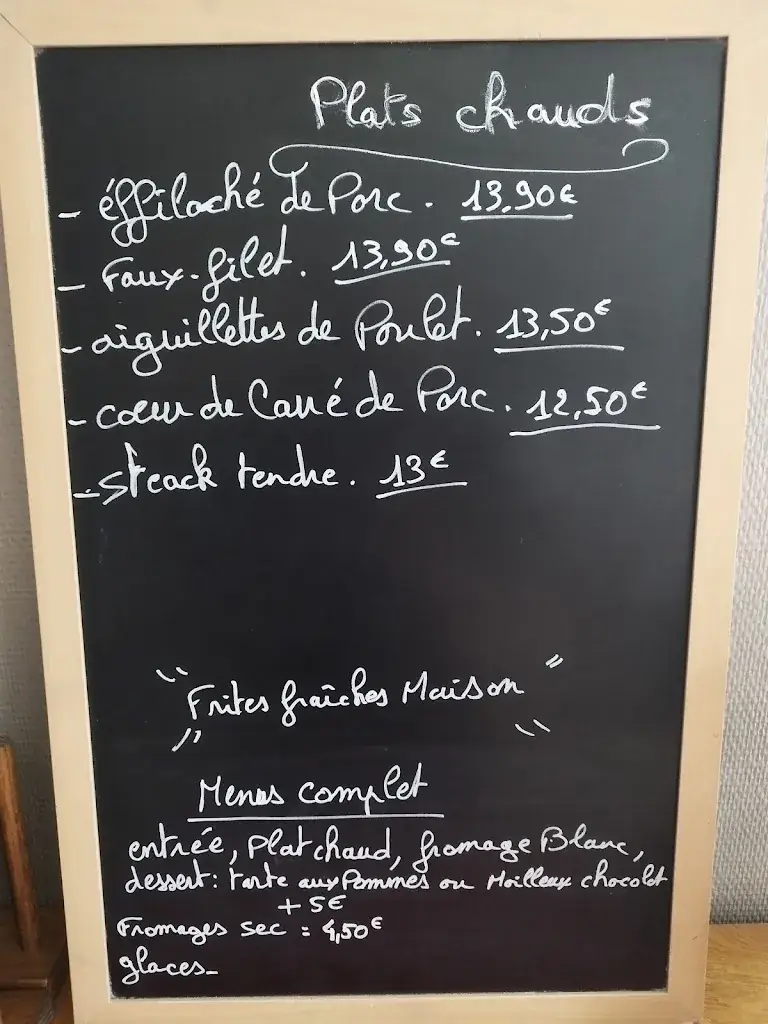 Plats chauds
- éffiloché de Porc. 13,90€
- Faux-filet. 13,90€
- aiguillettes de Poulet. 13,50€
- cœur de Carré de Porc. 12,50€
- Steack tendre. 13€
"Frites fraîches Maison"
Menus complet
entrée, Plat chaud, fromage Blanc,
dessert: tarte aux Pommes ou Moilleux chocolet
+ 5€
Fromages sec = 4,50€
glaces_